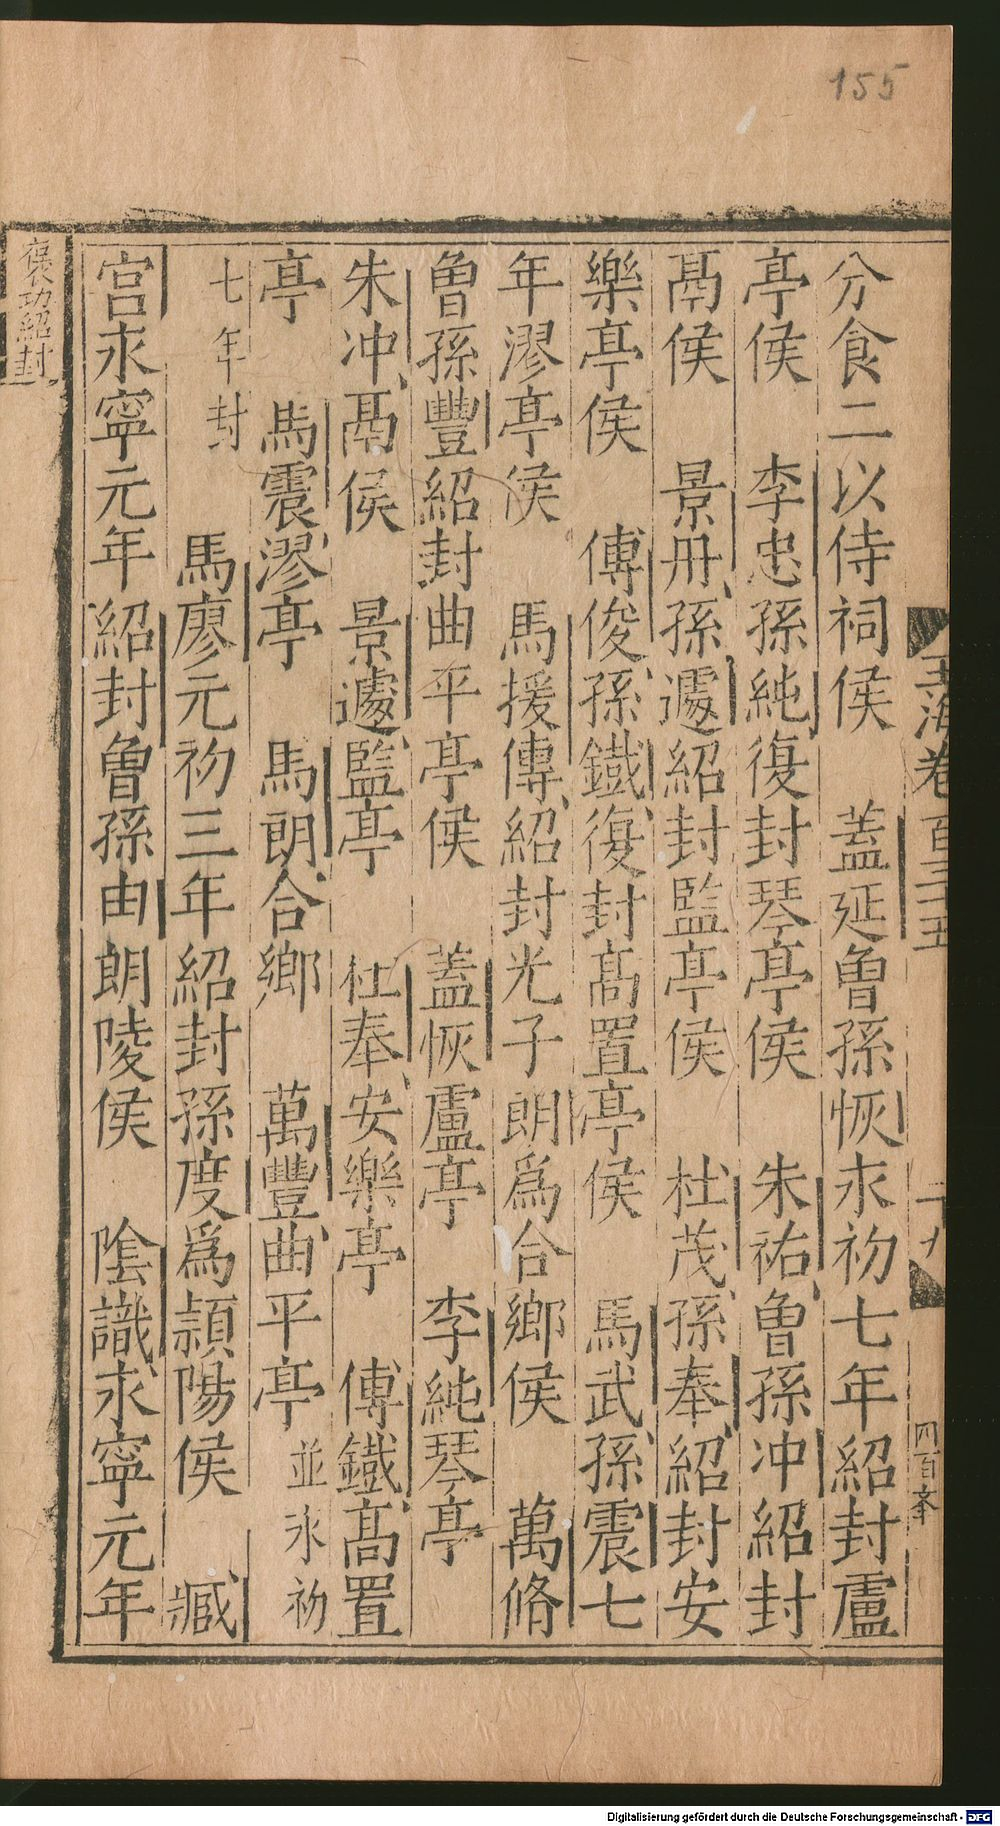 155
玉海卷百三十五
二九
四百
分食二以侍祠侯 蓋延曾孫恢永初七年紹封盧
亭侯 李忠孫純復封琴亭侯 朱祐曾孫冲紹封
鬲侯 景丹孫遽紹封監亭侯 杜茂孫奉紹封安
樂亭侯 傅俊孫鐵復封高置亭侯 馬武孫震七
年漻亭侯 馬援傳紹封光子朗爲合鄉侯 萬脩
曾孫豐紹封曲平亭侯 蓋恢盧亭 李純琴亭
朱冲鬲侯 景遽監亭 杜奉安樂亭 傅鐵高置
亭 馬震漻亭 馬朗合鄉 萬豐曲平亭 並永初
七年封 馬廖元初三年紹封孫度爲潁陽侯 臧
宮永寧元年紹封曾孫由朗陵侯 陰識永寧元年
褒功紹封
Digitalisierung gefördert durch die Deutsche Forschungsgemeinschaft - DFG